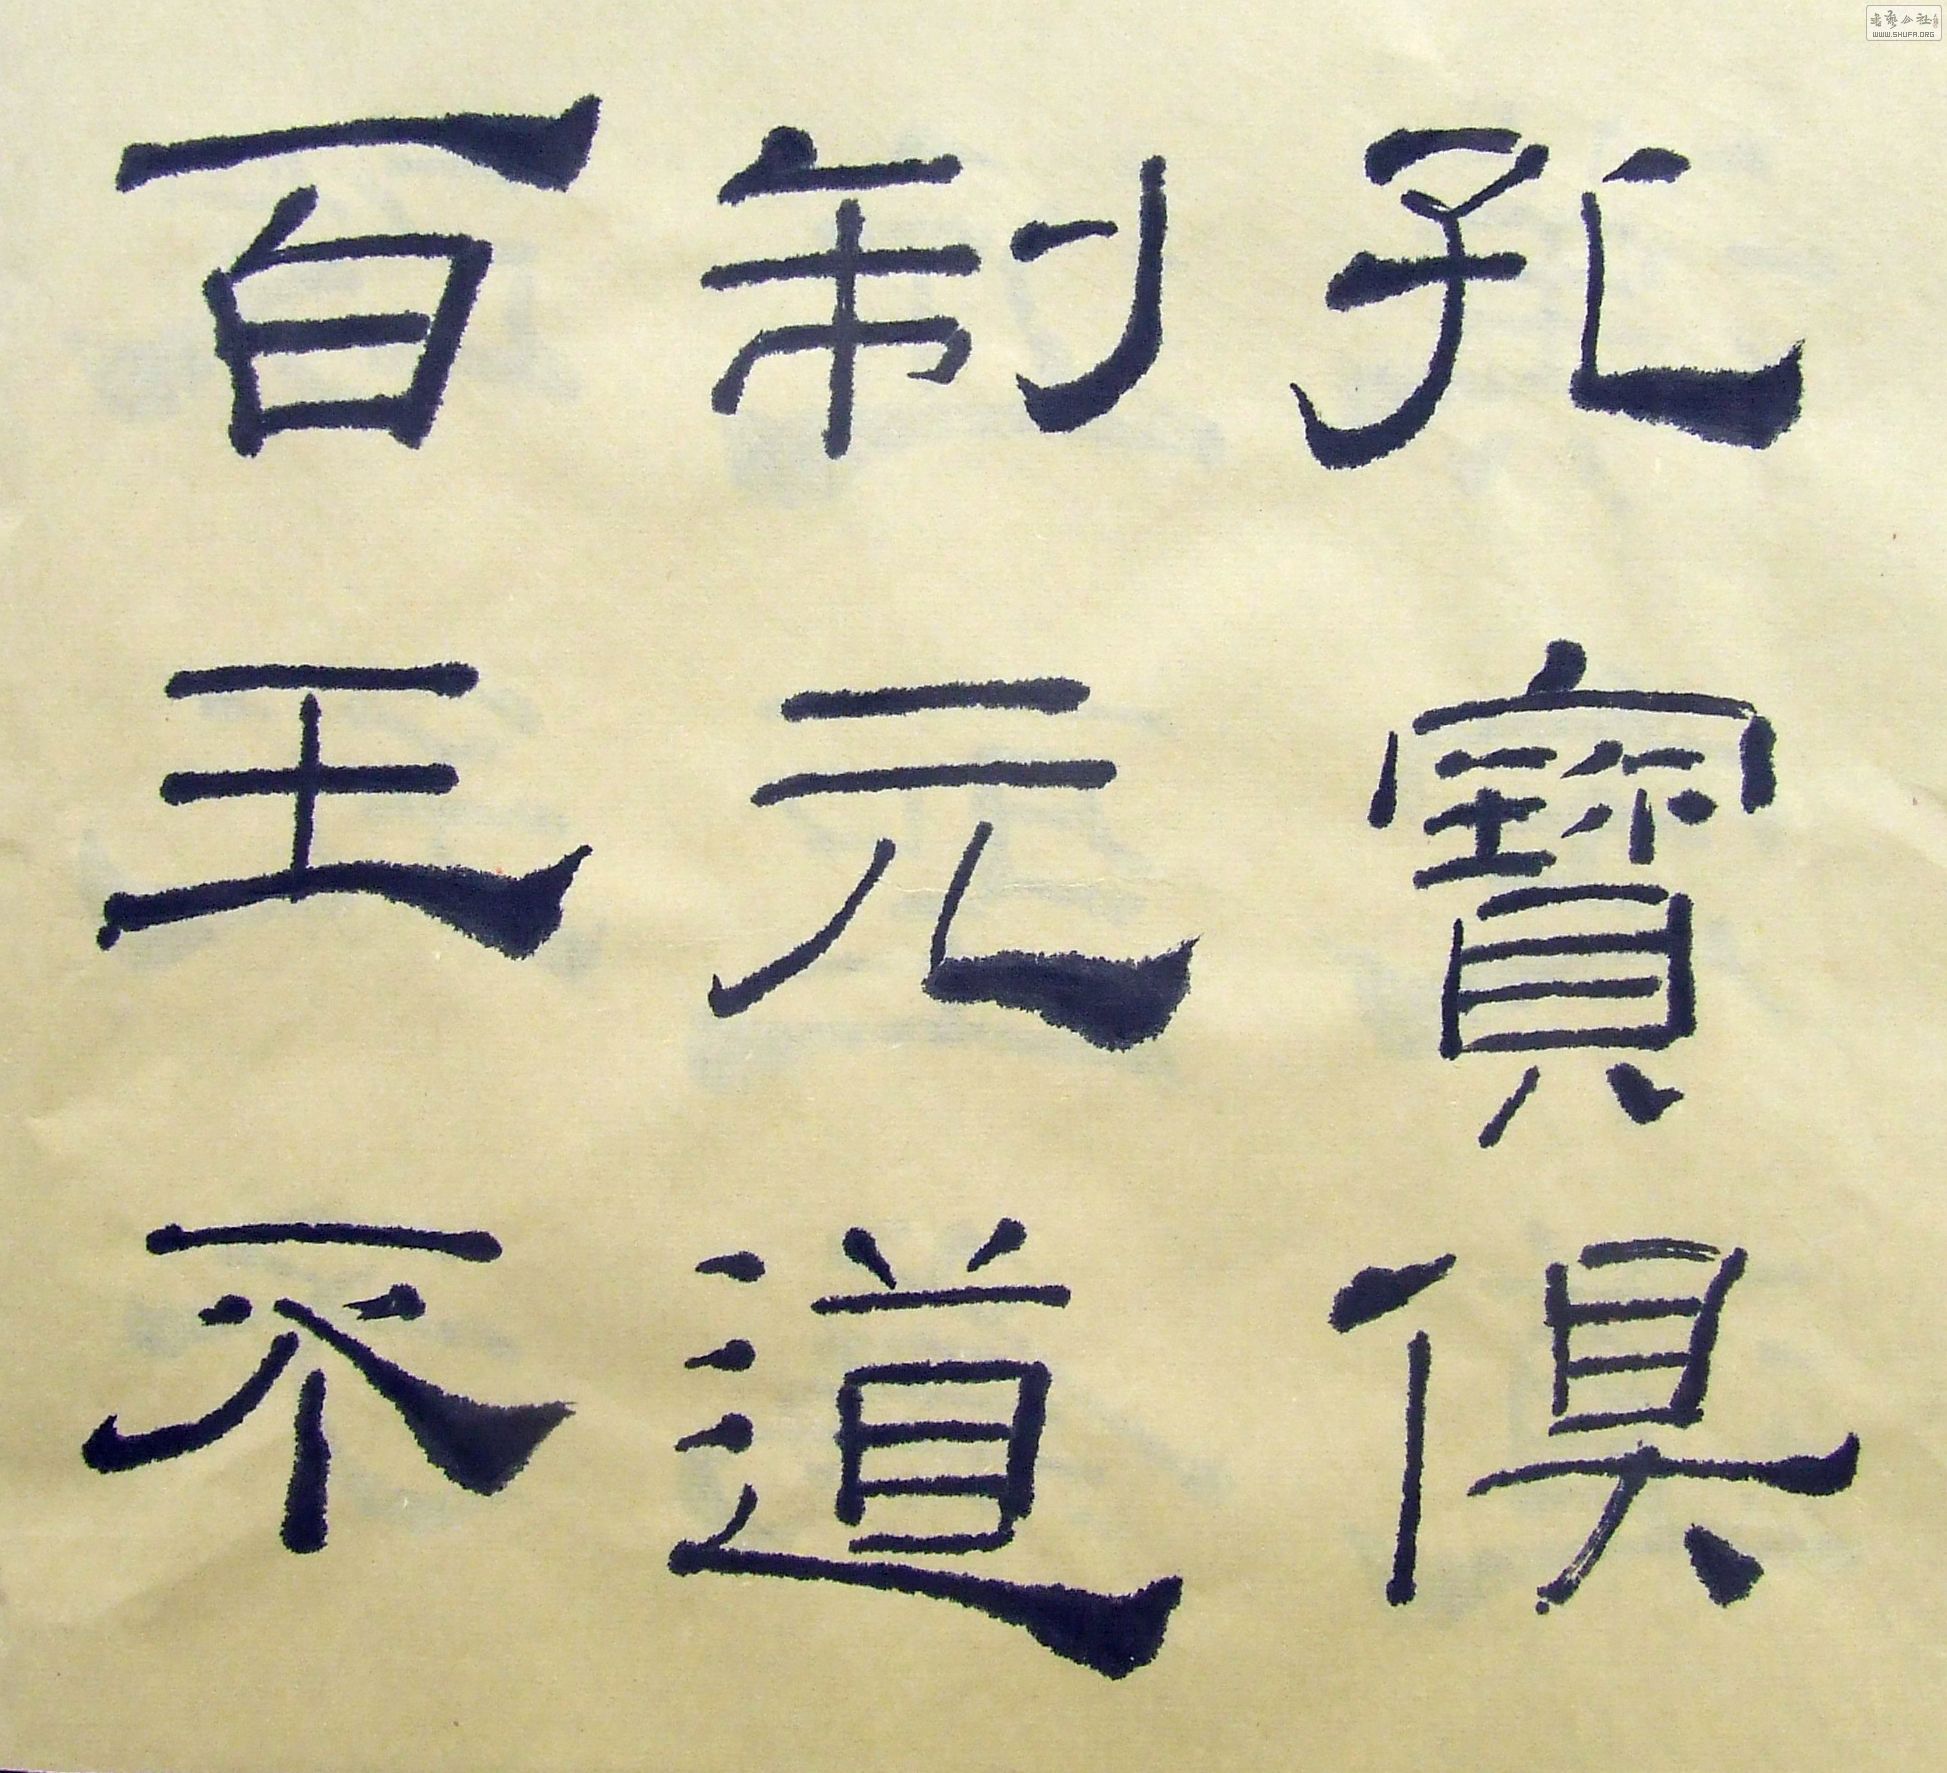 孔寶俱
制元道
百王不
书艺公社
WWW.SHUFA.ORG